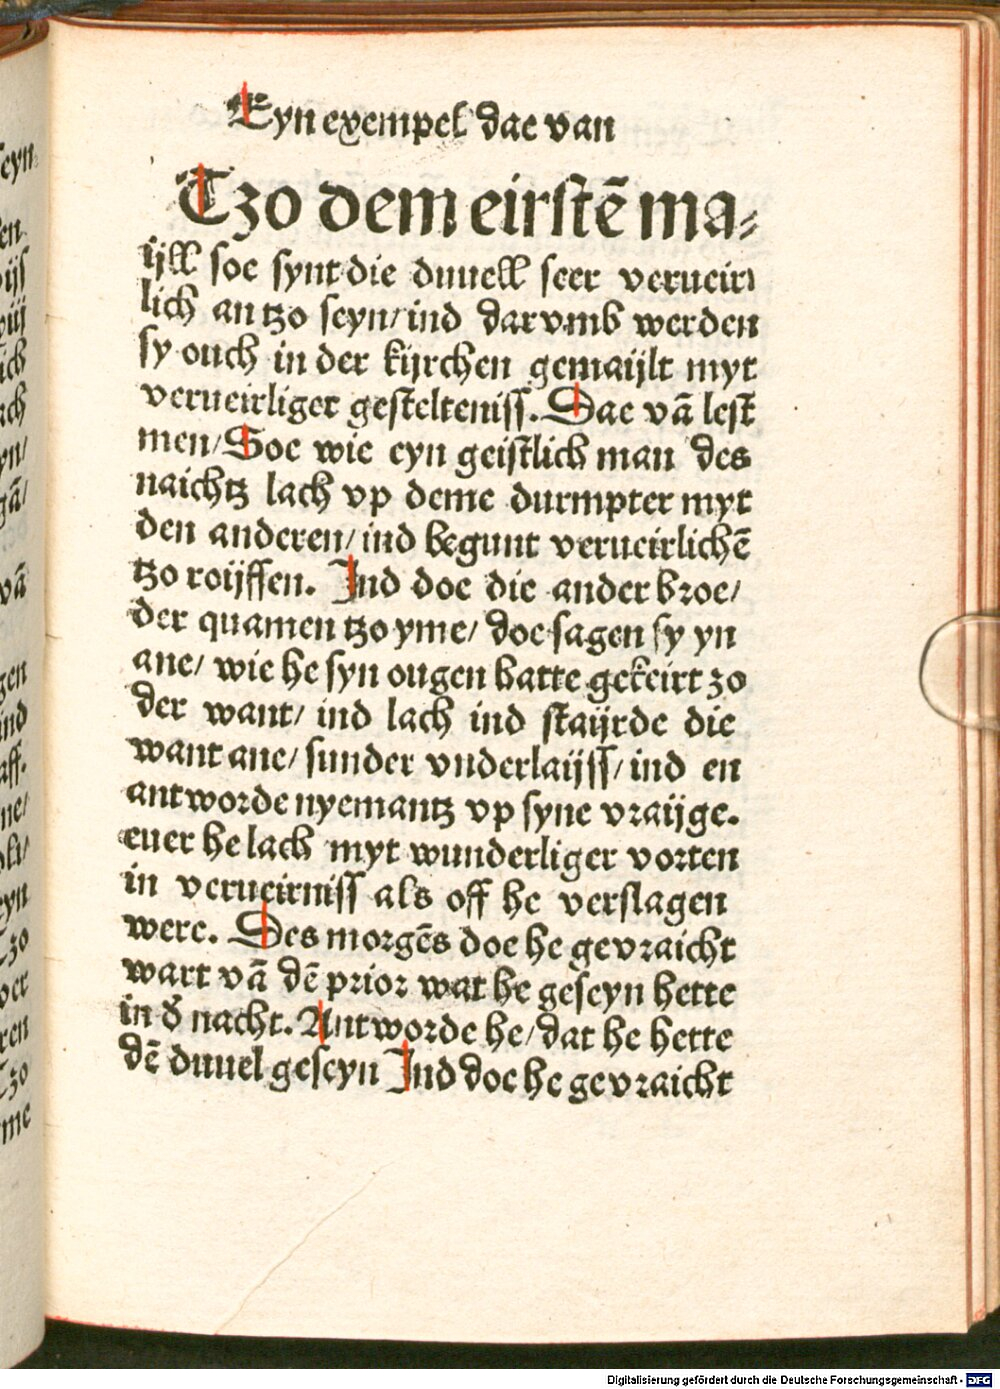 Eyn exempel dae van
Tzo dem eirstē ma⸗
ijll soe synt die duuell seer verueir
lich an tzo seyn/ ind dar vmb werden
sy ouch in der kijrchen gemaijlt myt
verueirliger gestelteniss. Dae vā lest
men/ Soe wie eyn geistlich man des
naichtz lach vp deme durmpter myt
den anderen/ ind begunt verueirlichē
tzo roijffen. Ind doe die ander broe/
der quamen tzo yme/ doe sagen sy yn
ane/ wie he syn ougen hatte gekeirt zo
der want/ ind lach ind staijrde die
want ane/ sunder vnderlaijss/ ind en
antworde nyemantz vp syne vraijge.
euer he lach myt wunderliger vorten
in verueirniss als off he verslagen
were. Des morgēs doe he gevraicht
wart vā dē prior wat he geseyn hette
in d' nacht. Antworde he/ dat he hette
dē duuel geseyn Ind doe he gevraicht
Digitalisierung gefördert durch die Deutsche Forschungsgemeinschaft - DFG